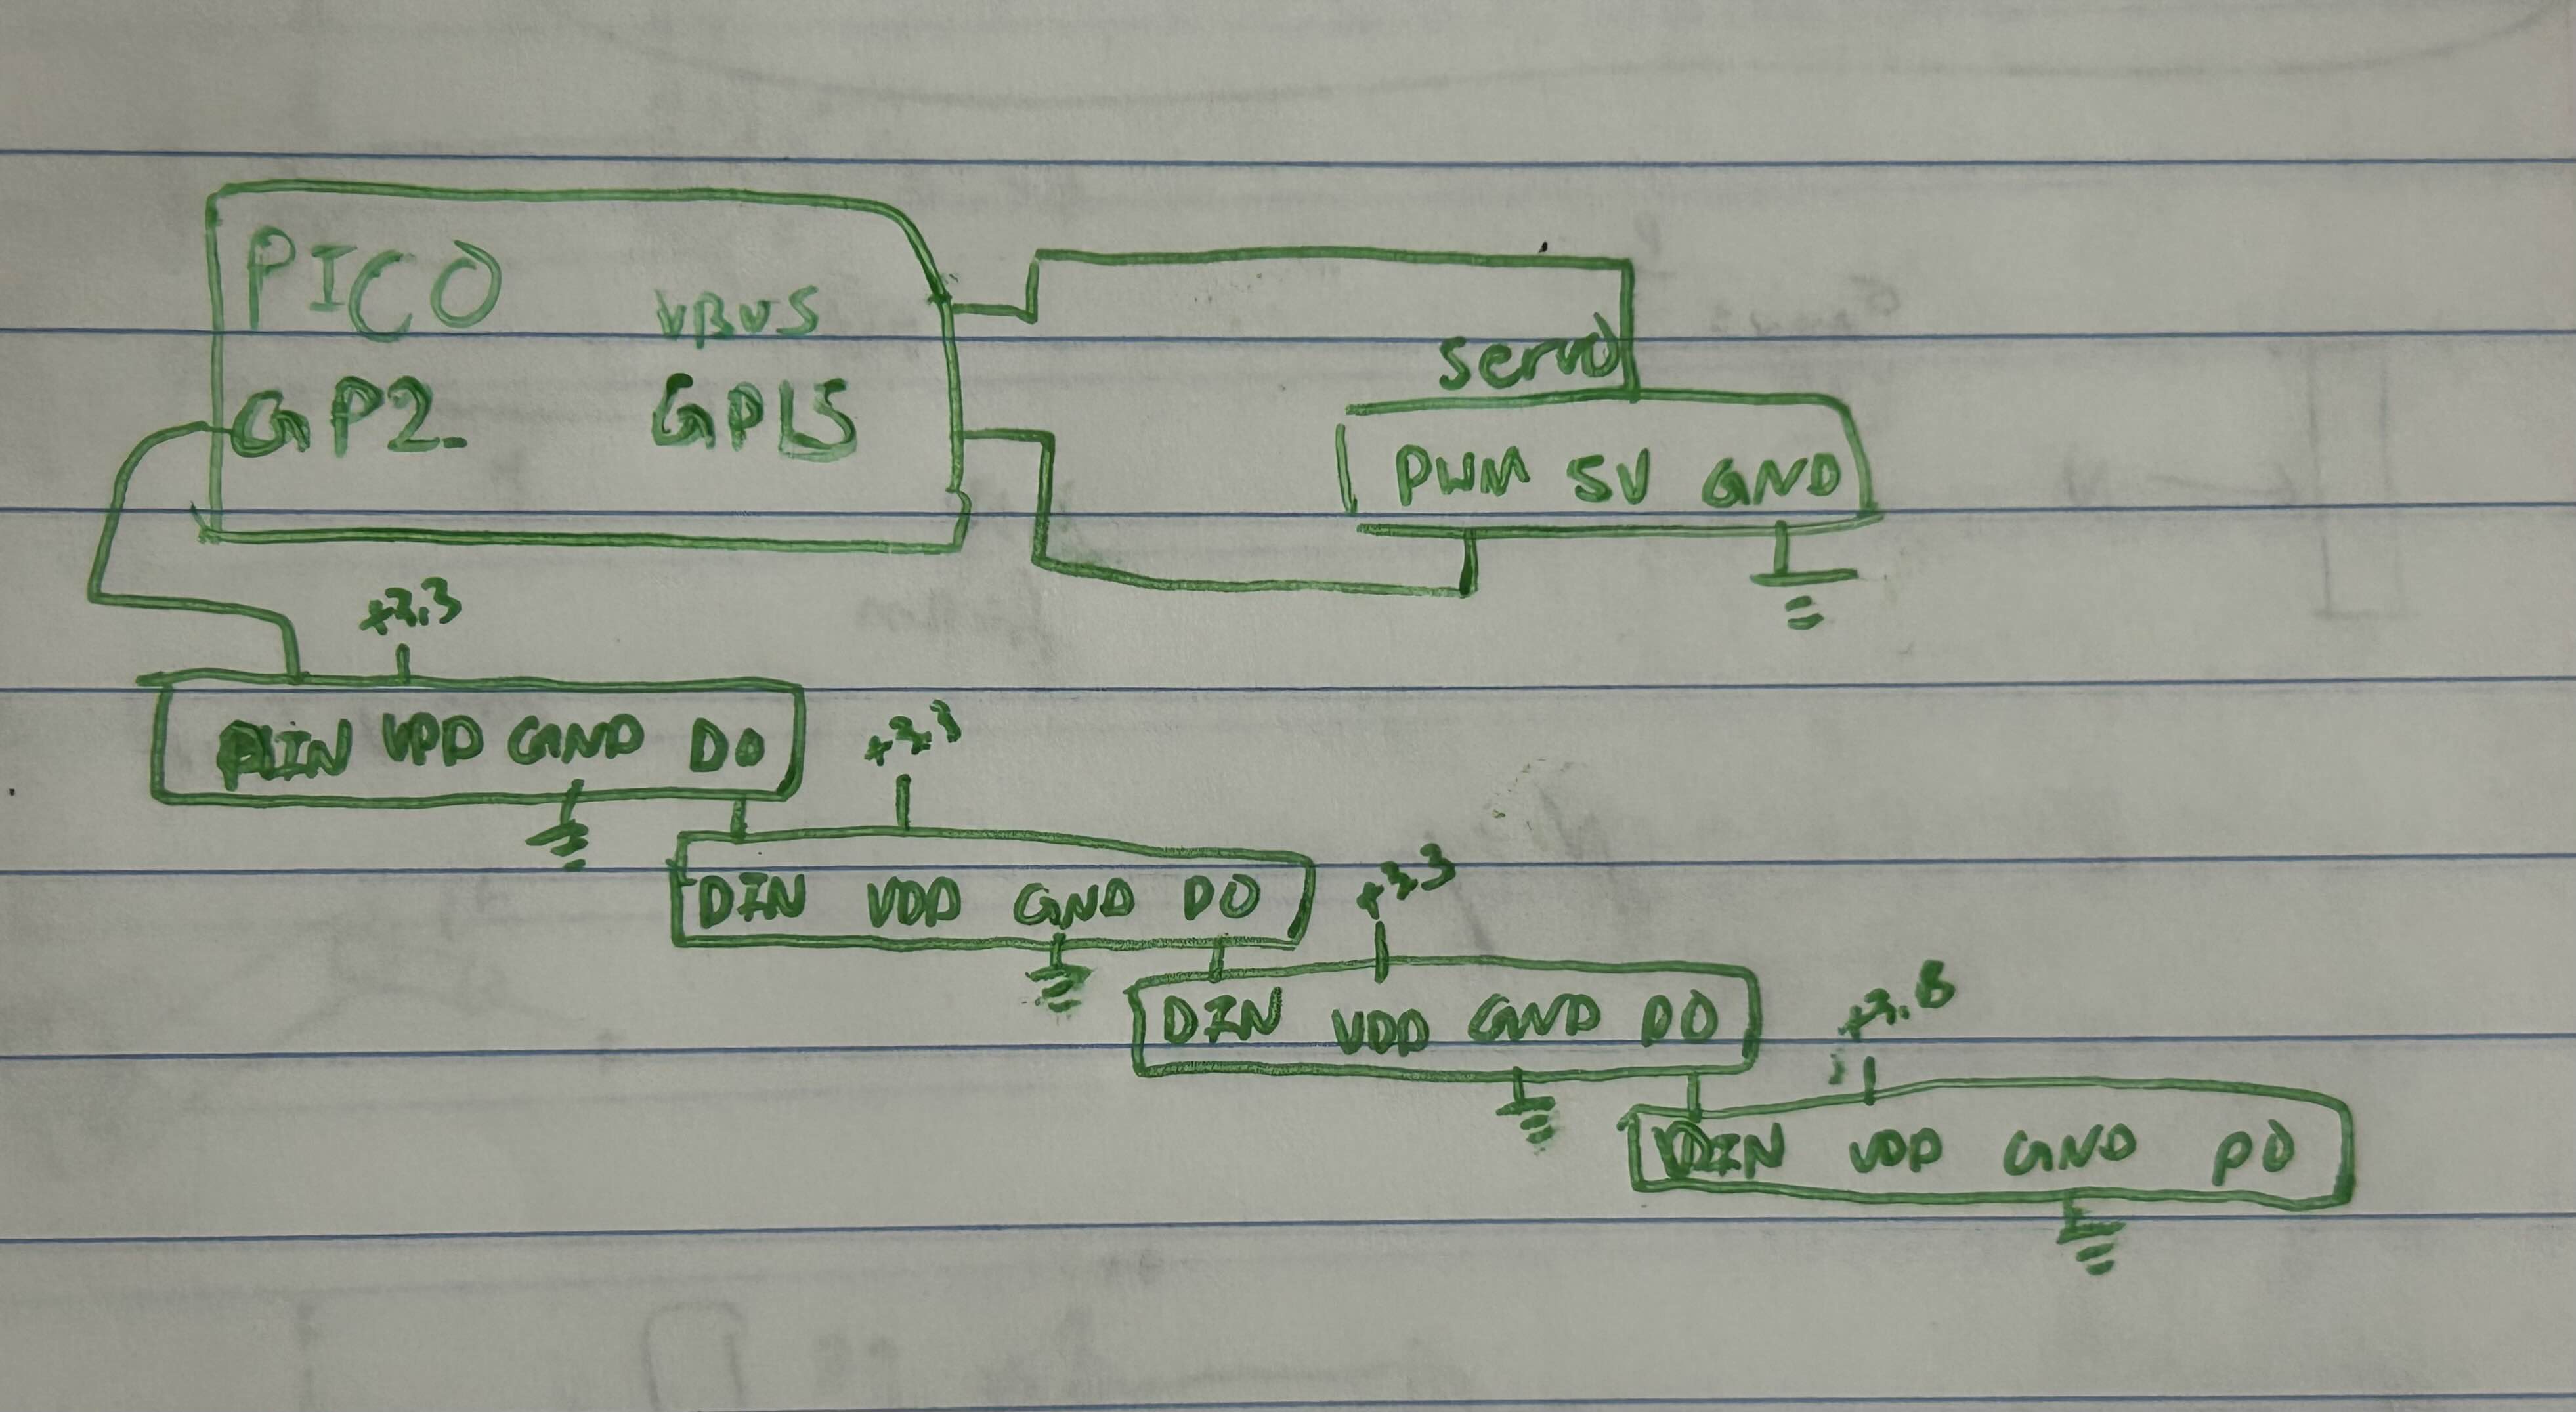 PICO
VBUS
GP2
GP15
servo
PWM 5V GND
+3.3
DIN VDD GND DO
+3.3
DIN VDD GND DO
+3.3
DIN VDD GND DO
+3.3
DIN VDD GND DO